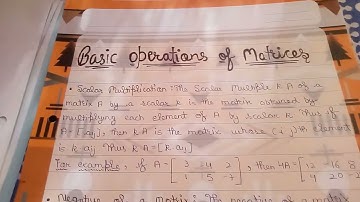 Basic operations of Matrices
• Scalar Multiplication : The Scalar Multiple k A of a
matrix A by a scalar k is the matrix obtained by
multiplying each element of A by scalar k. Thus if
A = aij, then k A is the matrix whose (i, j)th element
is k.aij. Thus k A = [k.aij]
For example, if A = [ 3 24 2 ], then 4A = [ 12 16
1 5 -7 4 20 -2
• Negative of a matrix : The negative of a matrix